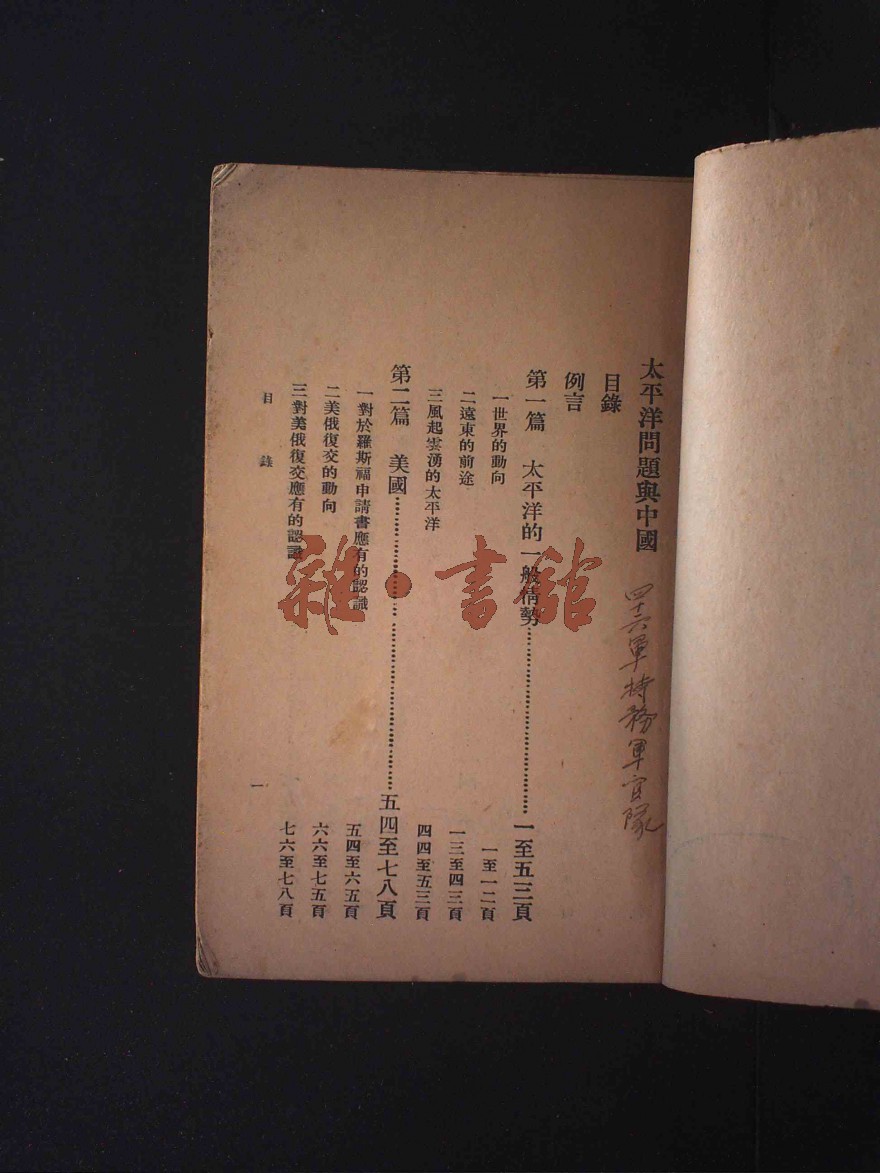 太平洋問題與中國
四十六軍特務軍官隊
目錄
例言
第一篇 太平洋的一般情勢……………………一至五三頁
一世界的動向 一至一二頁
二遠東的前途 一三至四三頁
三風起雲湧的太平洋 四四至五三頁
第二篇 美國……………………五四至七八頁
一對於羅斯福申請書應有的認識 五四至六五頁
二美俄復交的動向 六六至七五頁
三對美俄復交應有的認識 七六至七八頁
目 錄 一
雜·書館